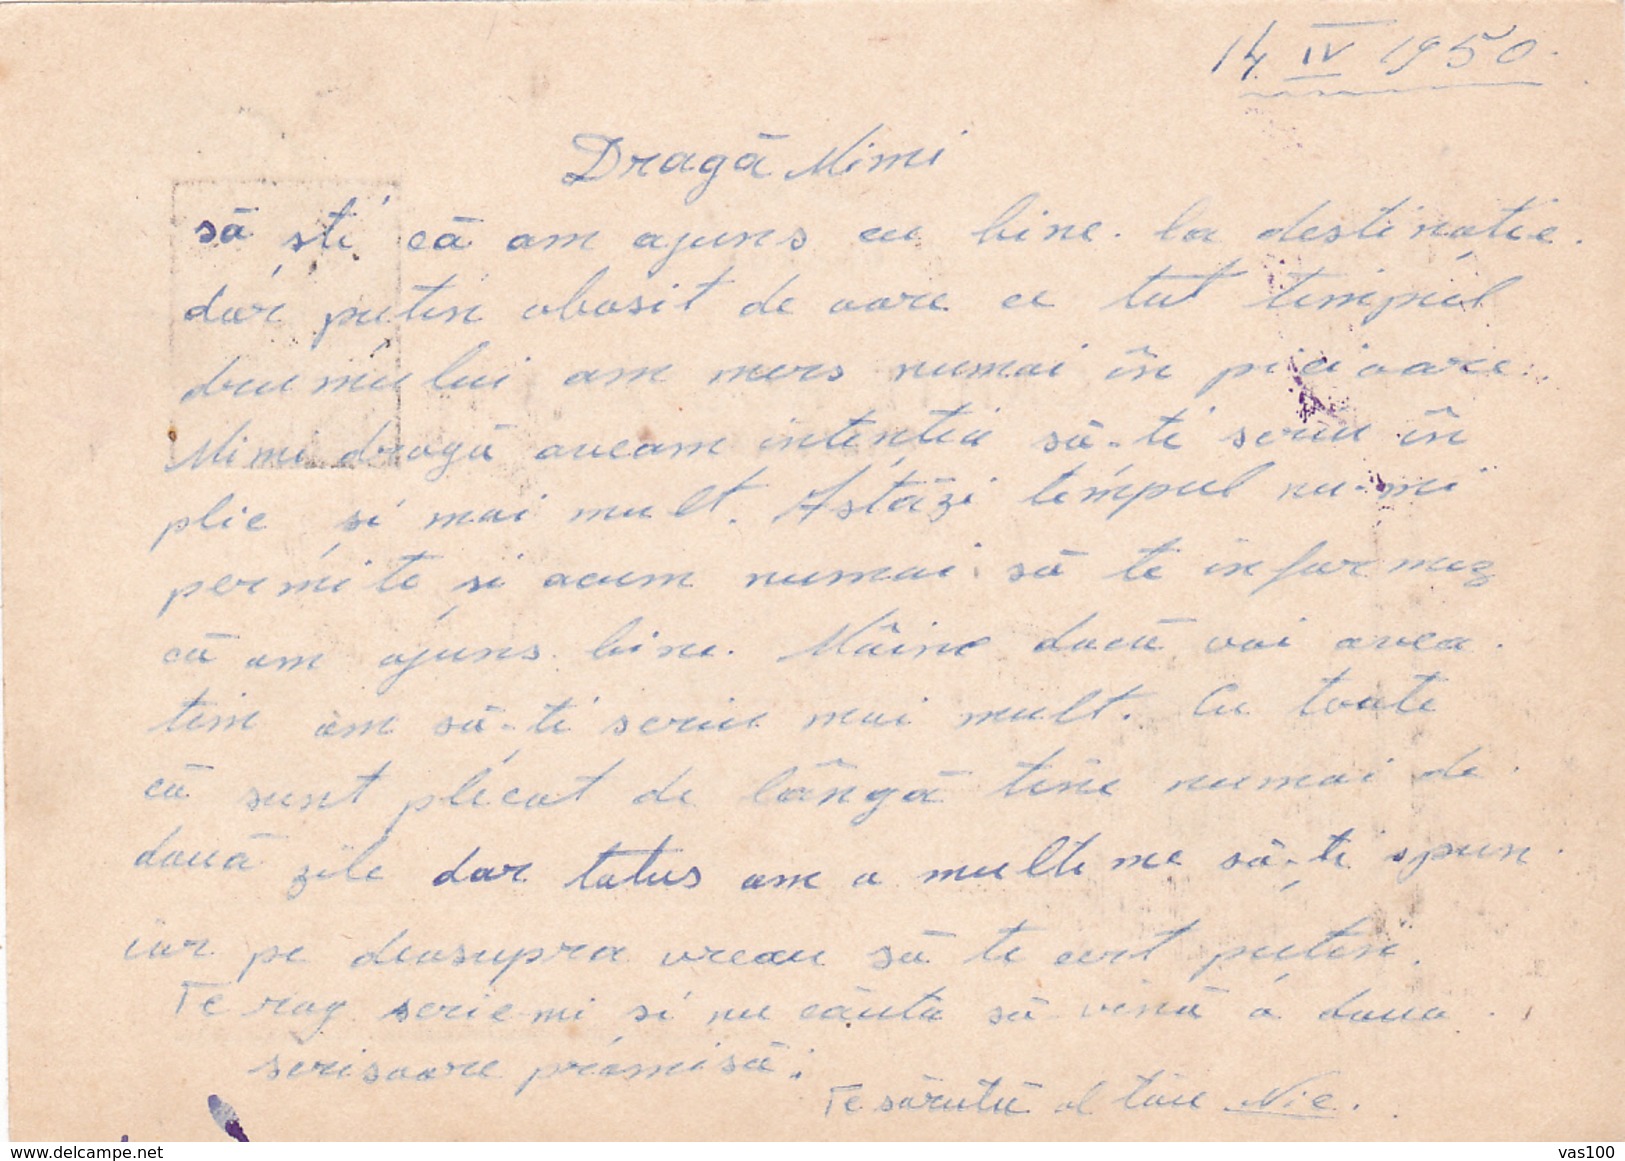 14. IV 1950.
Dragă Mimi
să ști că am ajuns cu bine. la destinație.
dar puțin obosit de oare ce tot timpul
drumului am mers numai în picioare.
Mimi dragă aveam intenția să-ți scriu în
plic și mai mult. Astăzi timpul nu-mi
permite și acum numai să te informez
că am ajuns bine. Mâine dacă voi avea
timp am să-ți scriu mai mult. Cu toate
că sunt plecat de lângă tine numai de
două zile dar totuș am o mulțime să-ți spun.
iar pe deasupra vreau să te cert puțin.
Te rog scrie-mi și nu căuta să vină a doua
scrisoare promisă.
Te sărută al tău Nic.
vas100